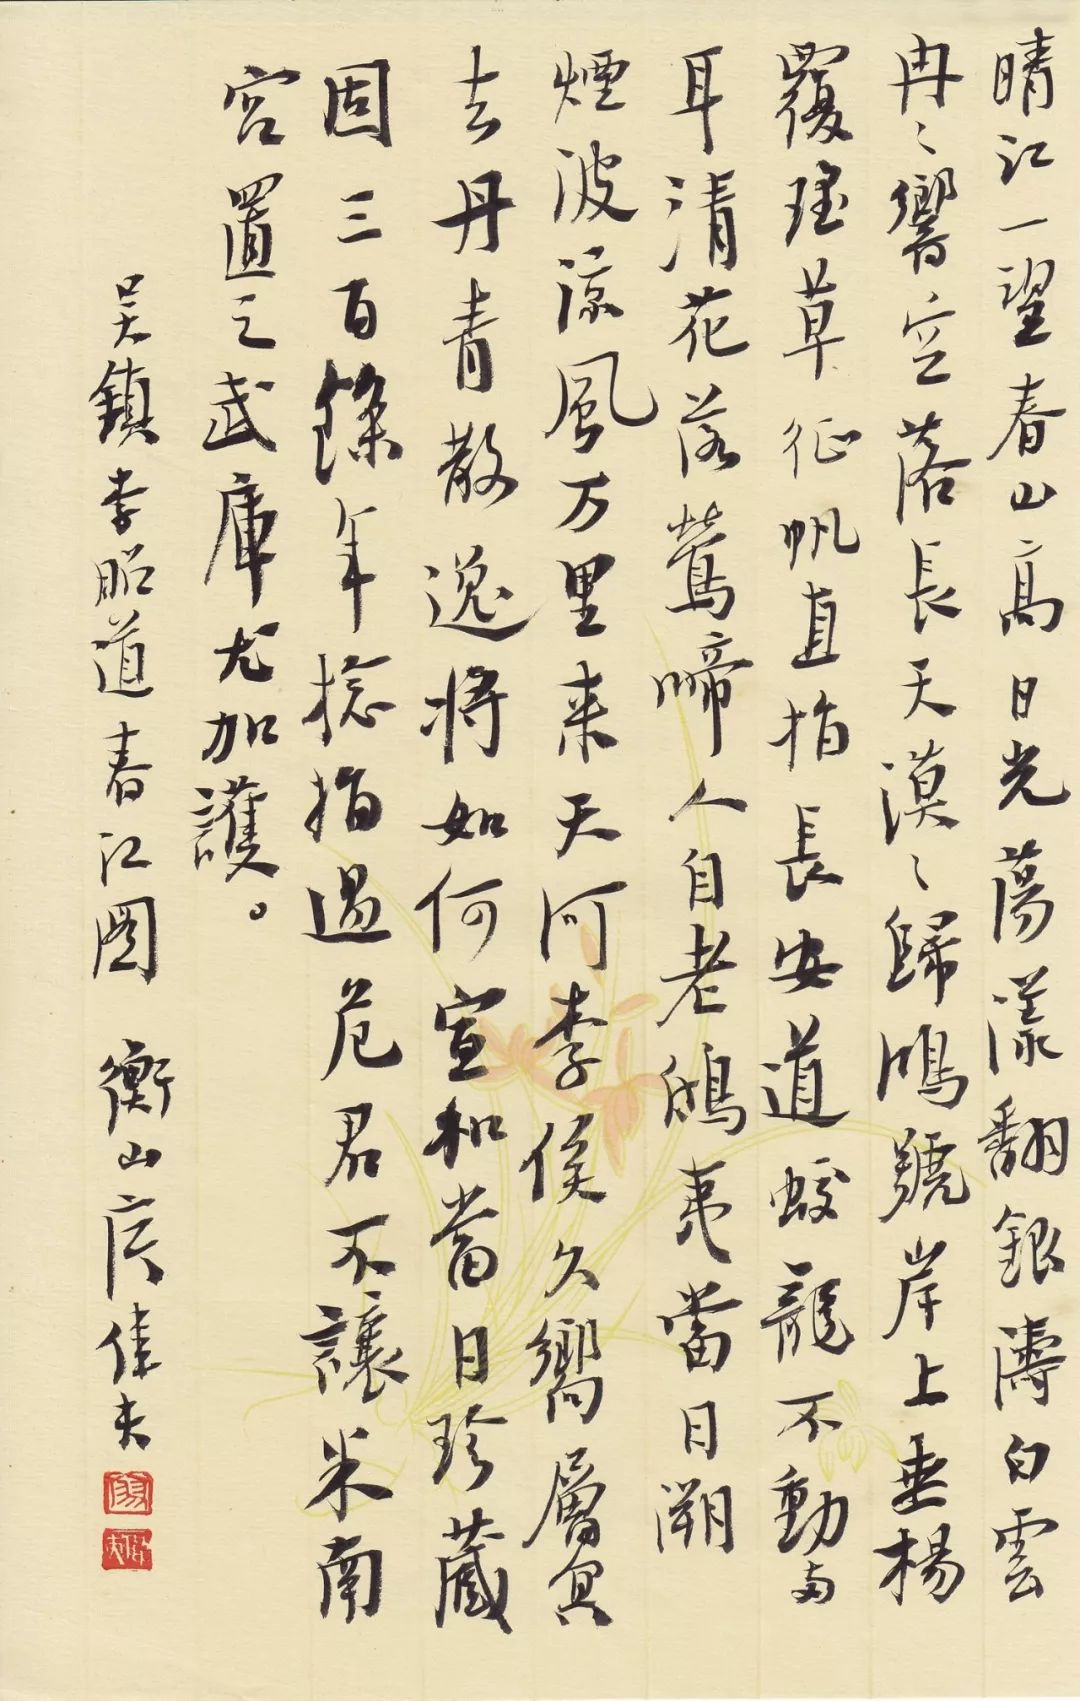 晴江一望春山高日光蕩漾翻銀濤白雲
冉〻響空落長天漠〻歸鴻號岸上垂楊
覆瑤草征帆直指長安道蛟龍不動两
耳清花落鶯啼人自老鴟夷當日溯
煙波涼風万里来天河李侯久嚮層冥
去丹青散逸將如何宣和當日珍藏
固三百餘年捻指過危君不讓米南
宮置之武庫尤加護。
吴鎮李昭道春江圖 衡山佳夫